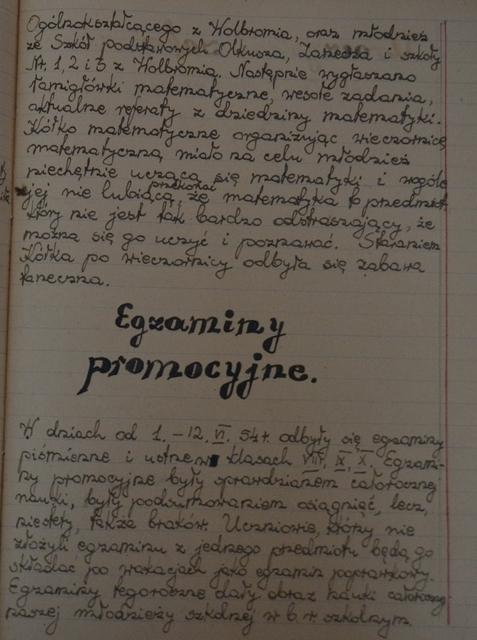 Ogólnokształcącego z Wolbromia, oraz młodzież
ze Szkół podstawowych Olkusza, Zarzecza i szkoły
Nr. 1, 2 i 3 z Wolbromia. Następnie wygłaszano
łamigłówki matematyczne, wesołe zadania,
aktualne referaty z dziedziny matematyki.
Kółko matematyczne organizując wieczornicę
matematyczną miało na celu młodzież
niechętnie uczącą się matematyki i wogóle
jej nie lubiącą, przekonać że matematyka to przedmiot
który nie jest tak bardzo odstraszający, że
można się go uczyć i poznawać. Staraniem
Kółka po wieczornicy odbyła się zabawa
taneczna.
Egzaminy
promocyjne.
W dniach od 1. – 12. VI. 54 r. odbyły się egzaminy
piśmienne i ustne w klasach VIII, IX, X. Egzami-
ny promocyjne były sprawdzianem całorocznej
nauki, były podsumowaniem osiągnięć, lecz,
niestety, także braków. Uczniowie, którzy nie
złożyli egzaminu z jednego przedmiotu będą go
składać po wakacjach jako egzamin poprawkowy.
Egzaminy tegoroczne dały obraz nauki całorocznej
naszej młodzieży szkolnej w b. r. szkolnym.